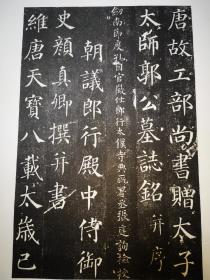 唐故工部尚書贈太子
太師郭公墓誌銘 并序
劍南節度孔目官徵仕郎行太僕寺典厩署丞張庭詢檢校
朝議郎行殿中侍御
史顏真卿撰并書
維唐天寶八載太歲己